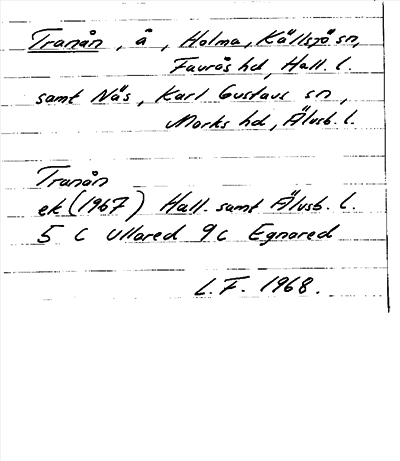 Tranån, å, Holma, Källsjö sn,
Faurås hd, Hall. l.
samt Näs, Karl Gustavs sn,
Marks hd, Älvsb. l.
Tranån
ek (1967) Hall. samt Älvsb. l.
5 C Ullared 9 c Egnared
L.F. 1968.